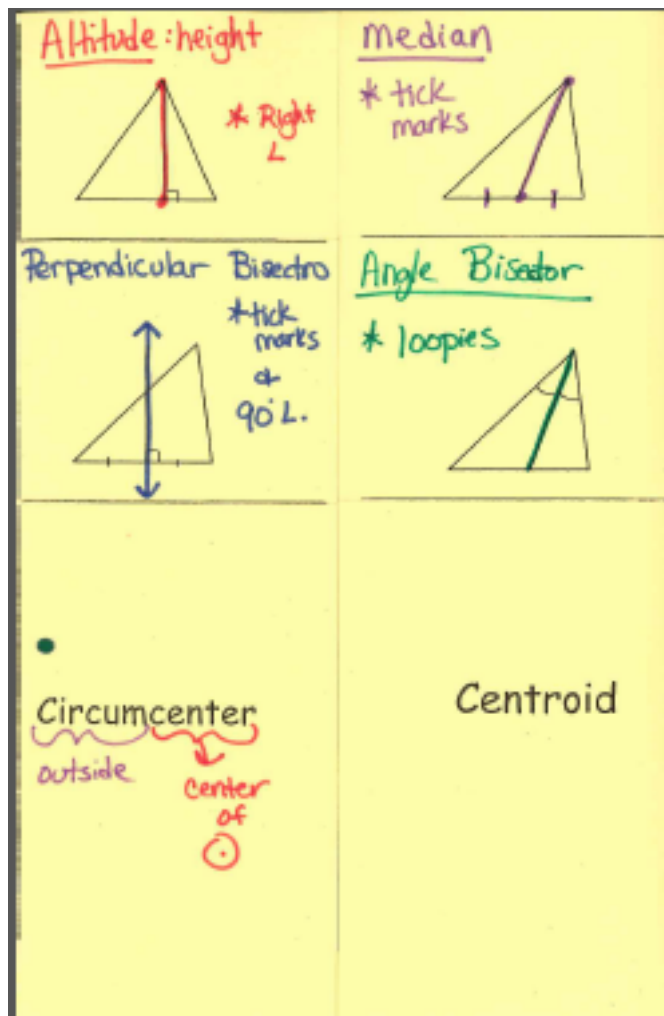 Altitude: height
* Right
L
median
* tick
marks
Perpendicular Bisectro
* tick
marks
&
90° L.
Angle Bisector
* loopies
Circumcenter
outside
center
of
Centroid